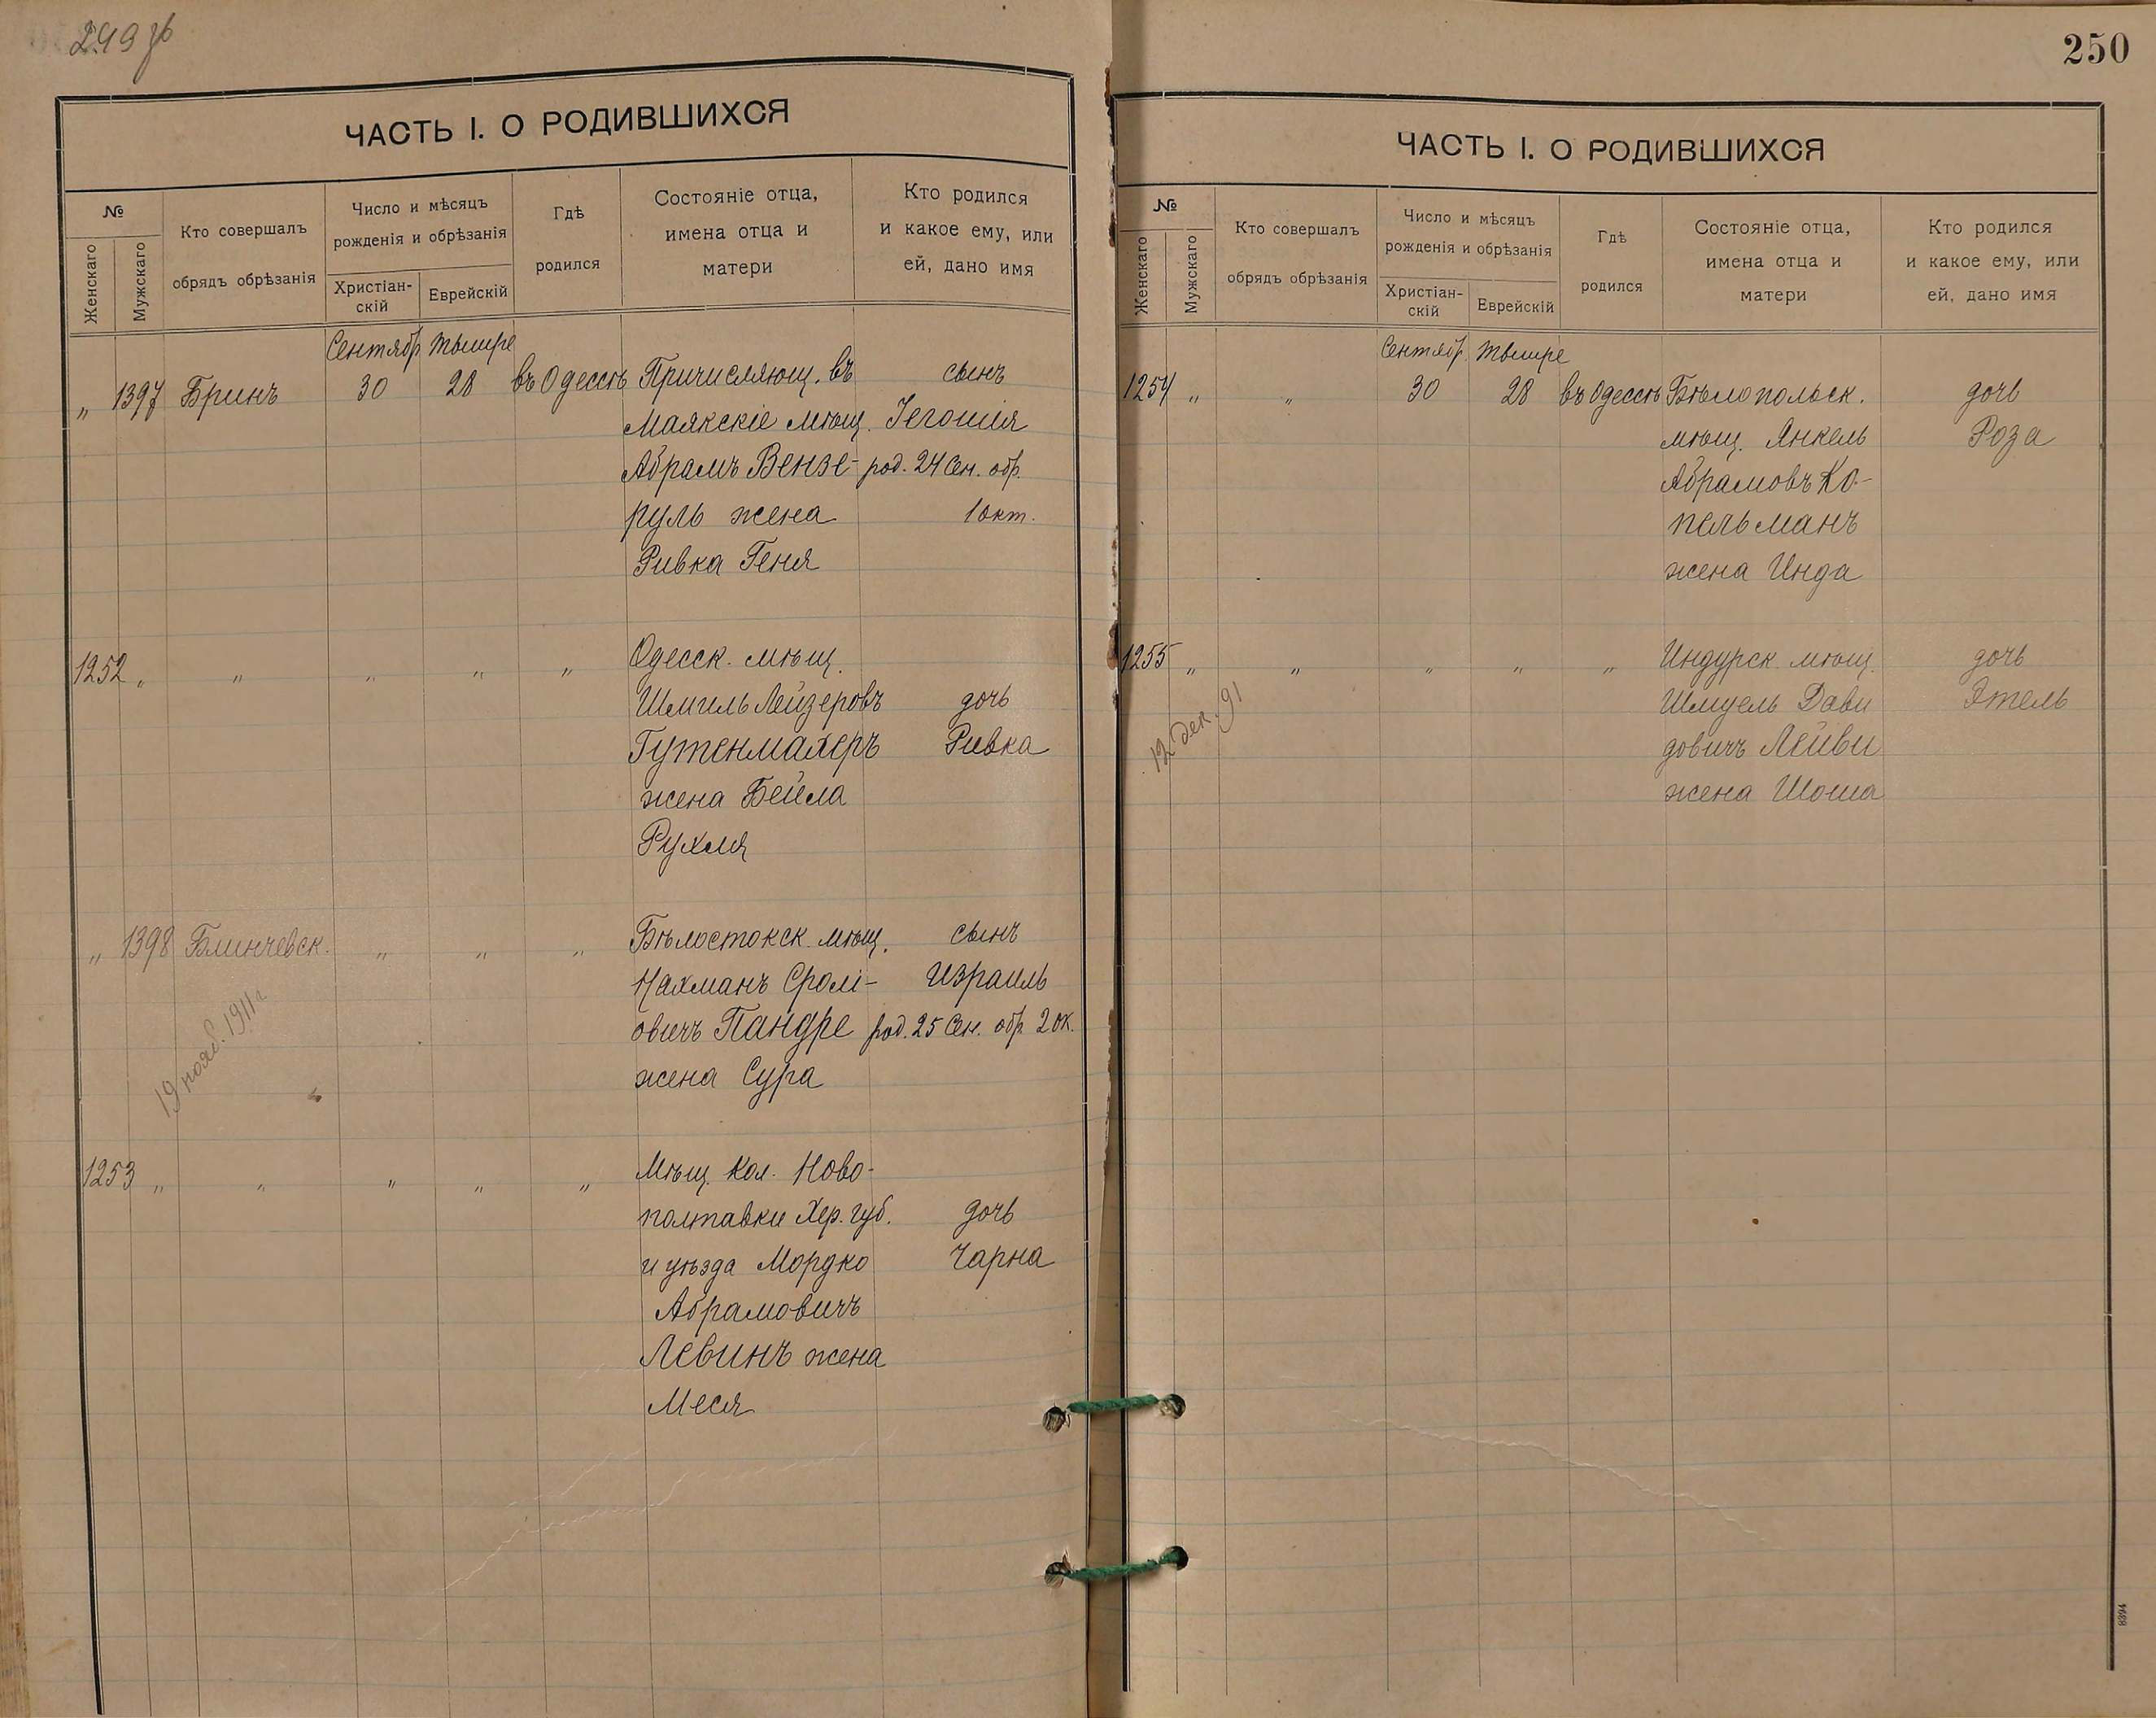 249 об
ЧАСТЬ I. О РОДИВШИХСЯ
№
Женскаго
Мужскаго
Кто совершалъ
обрядъ обрѣзанія
Число и мѣсяцъ
рожденія и обрѣзанія
Христіан-
скій
Еврейскій
Гдѣ
родился
Состояніе отца,
имена отца и
матери
Кто родился
и какое ему, или
ей, дано имя
Сентябр Тышре
„ 1397 Бринъ 30 28 въ Одессѣ Причисляющ. въ сынъ
Маякскіе мѣщ. Іегошія
Абрамъ Вензе- род. 24 Сен. обр.
руль жена 1 окт.
Ривка Геня
1252 „ „ „ „ „ Одесск. мѣщ.
Шмиль Лейзеровъ дочь
Гутенмахеръ Ривка
жена Бейла
Рухля
„ 1398 Блинчевск. „ „ „ Бѣлостокск. мѣщ. сынъ
Нахманъ Сролі- Израиль
овичъ Пандре род. 25 Сен. обр 2 ок.
жена Сура
19 нояб. 1911 г
1253 „ „ „ „ „ Мѣщ. Кол. Ново-
полтавки Хер. губ. дочь
и уѣзда Мордко Чарна
Абрамовичъ
Левинъ жена
Меся
250
ЧАСТЬ I. О РОДИВШИХСЯ
№
Женскаго
Мужскаго
Кто совершалъ
обрядъ обрѣзанія
Число и мѣсяцъ
рожденія и обрѣзанія
Христіан-
скій
Еврейскій
Гдѣ
родился
Состояніе отца,
имена отца и
матери
Кто родился
и какое ему, или
ей, дано имя
Сентябр. Тышре
1254 „ „ 30 28 въ Одессѣ Бѣлопольск. дочь
мѣщ. Янкель Роза
Абрамовъ Ко-
пельманъ
жена Инда
1255 „ „ „ „ „ Индурск. мѣщ. дочь
Шмуель Дави Этель
довичъ Лейви
жена Шоша
12 дек. 91
8394